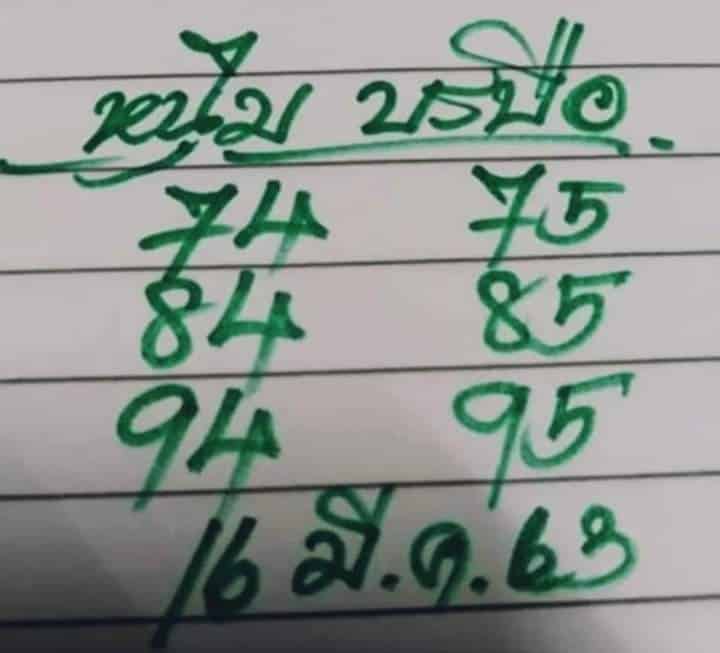 หนุ่ม บรบือ
74 75
84 85
94 95
16 มี.ค.63